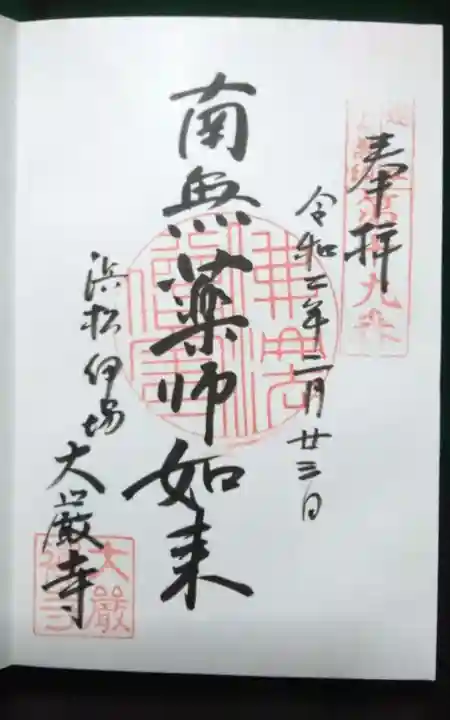 奉拝
令和二年二月廿三日
南無薬師如来
浜松伊場
大巖寺